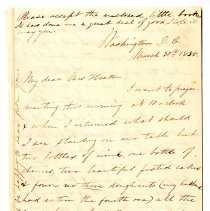 Please accept the enclosed little book
It has done me a great deal of good. I hope it
may you.
Washington D. C.
March 30th 1886.
My dear Mrs Heaton
I went to prayer
meeting this morning at 10 o'clock
& when I returned what should
I see standing on our table but
two bottles of wine, one bottle of
cherries, two beautiful frosted cakes
& four no three doughnuts (my husband
had eaten the fourth one) all the